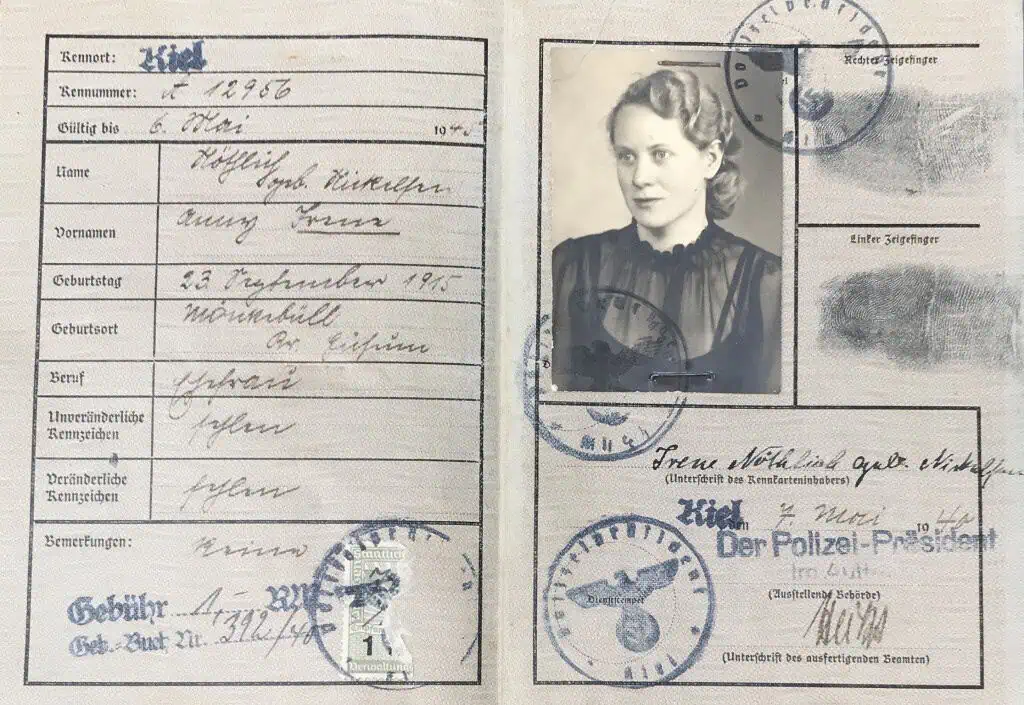 Kennort: Kiel
Kennummer: A 12956
Gültig bis 6. Mai 1945
Name Nöthlich
geb. Nickelsen
Vornamen Anny Irene
Geburtstag 23. September 1915
Geburtsort Mönkebüll
Kr. Husum
Beruf Ehefrau
Unveränderliche
Kennzeichen fehlen
Veränderliche
Kennzeichen fehlen
Bemerkungen: Keine
Gebühr 1,- RM
Geb.-Buch Nr. 392/40
Staatliche
1
Verwaltung
Rechter Zeigefinger
Linker Zeigefinger
Irene Nöthlich geb. Nickelsen
(Unterschrift des Kennkarteninhabers)
Kiel den 7. Mai 1940
Der Polizei-Präsident
(Ausstellende Behörde)
(Unterschrift des ausfertigenden Beamten)
Polizeipräsident
Dienststempel
Kiel